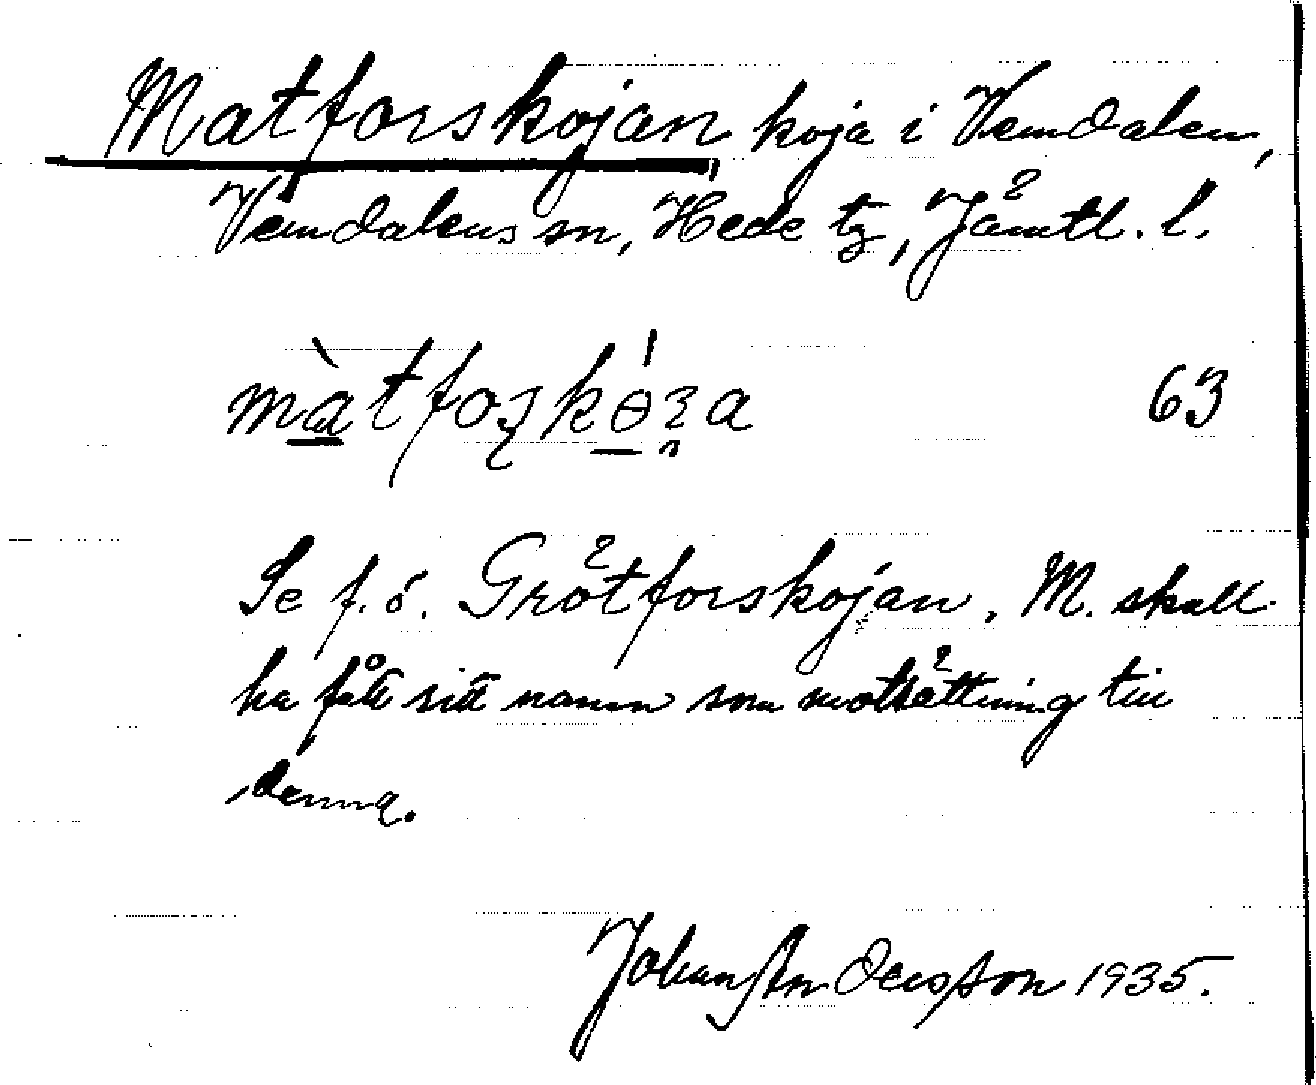 Matforskojan koja i Vemdalen,
Vemdalens sn, Hede tg, Jämtl. l.
màtfoʂkɵ́ʒa 63
Se f. ö. Grötforskojan. M. skall
ha fått sitt namn som motsättning till
denna.
Johan Andersson 1935.